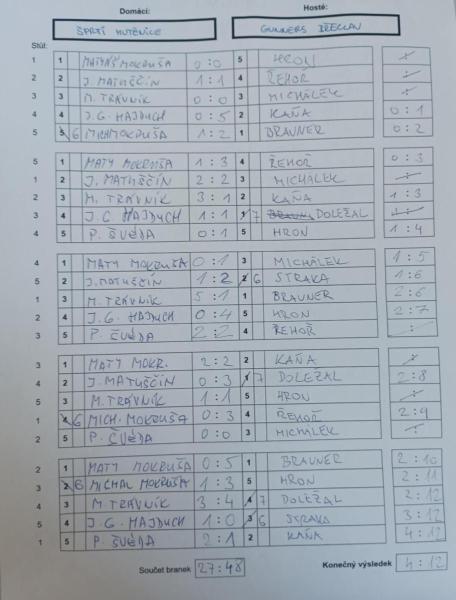 Domácí: Hosté:
ŠPRTI HUTĚNICE GUNNERS BŘECLAV
Stůl:
1 1 MATYÁŠ MOKRUŠA 0:0 5 HRON
2 2 J. MATUŠČÍN 1:1 4 ŘEHOŘ
3 3 M. TRÁVNÍK 0:0 3 MICHÁLEK
4 4 J.G. HAJDUCH 0:5 2 KAŇA 0:1
5 6 MICH MOKRUŠA 1:2 1 BRAUNER 0:2
5 1 MATY MOKRUŠA 1:3 4 ŘEHOŘ 0:3
1 2 J. MATUŠČÍN 2:2 3 MICHÁLEK
2 3 M. TRÁVNÍK 3:1 2 KAŇA 1:3
3 4 J.G. HAJDUCH 1:1 7 DOLEŽAL
4 5 P. ŠVÉDA 0:1 5 HRON 1:4
4 1 MATY MOKRUŠA 0:1 3 MICHÁLEK 1:5
5 2 J. MATUŠČÍN 1:2 6 STRAKA 1:6
1 3 M. TRÁVNÍK 5:1 1 BRAUNER 2:6
2 4 J.G. HAJDUCH 0:4 5 HRON 2:7
3 5 P. ŠVÉDA 2:2 4 ŘEHOŘ :
3 1 MATY MOKR. 2:2 2 KAŇA
4 2 J. MATUŠČÍN 0:3 7 DOLEŽAL 2:8
5 3 M. TRÁVNÍK 1:1 5 HRON
1 6 MICH. MOKRUŠA 0:3 4 ŘEHOŘ 2:9
2 5 P. ŠVÉDA 0:0 3 MICHÁLEK
2 1 MATY MOKRUŠA 0:5 1 BRAUNER 2:10
3 6 MICHAL MOKRUŠA 1:3 5 HRON 2:11
4 3 M. TRÁVNÍK 3:4 7 DOLEŽAL 2:12
5 4 J.G. HAJDUCH 1:0 6 STRAKA 3:12
1 5 P. ŠVÉDA 2:1 2 KAŇA 4:12
Součet branek 27:48 Konečný výsledek 4:12